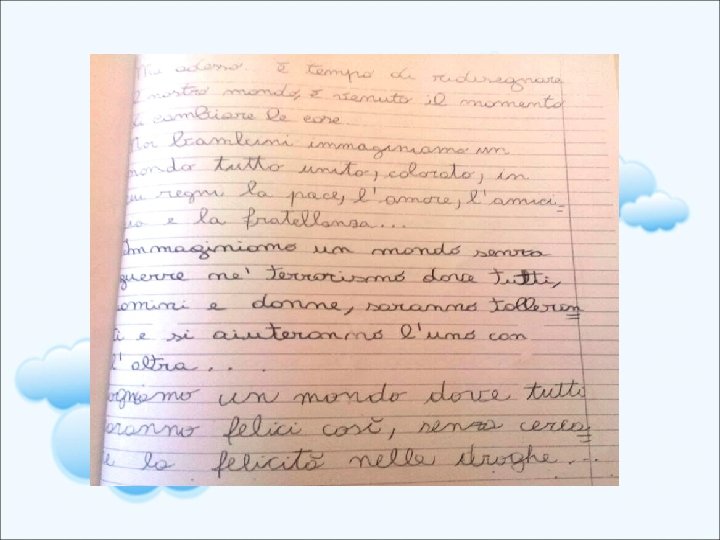 Ma adesso. È tempo di ridisegnare
l nostro mondo, è venuto il momento
di cambiare le cose.
Noi bambini immaginiamo un
mondo tutto unito, colorato, in
cui regni la pace, l'amore, l'amici=
zia e la fratellanza...
Immaginiamo un mondo senza
guerre ne' terrorismo dove tutti,
uomini e donne, saranno tolleran=
ti e si aiuteranno l'uno con
l'altra...
ogniamo un mondo dove tutti
saranno felici così, senza cerca=
re la felicità nelle droghe...